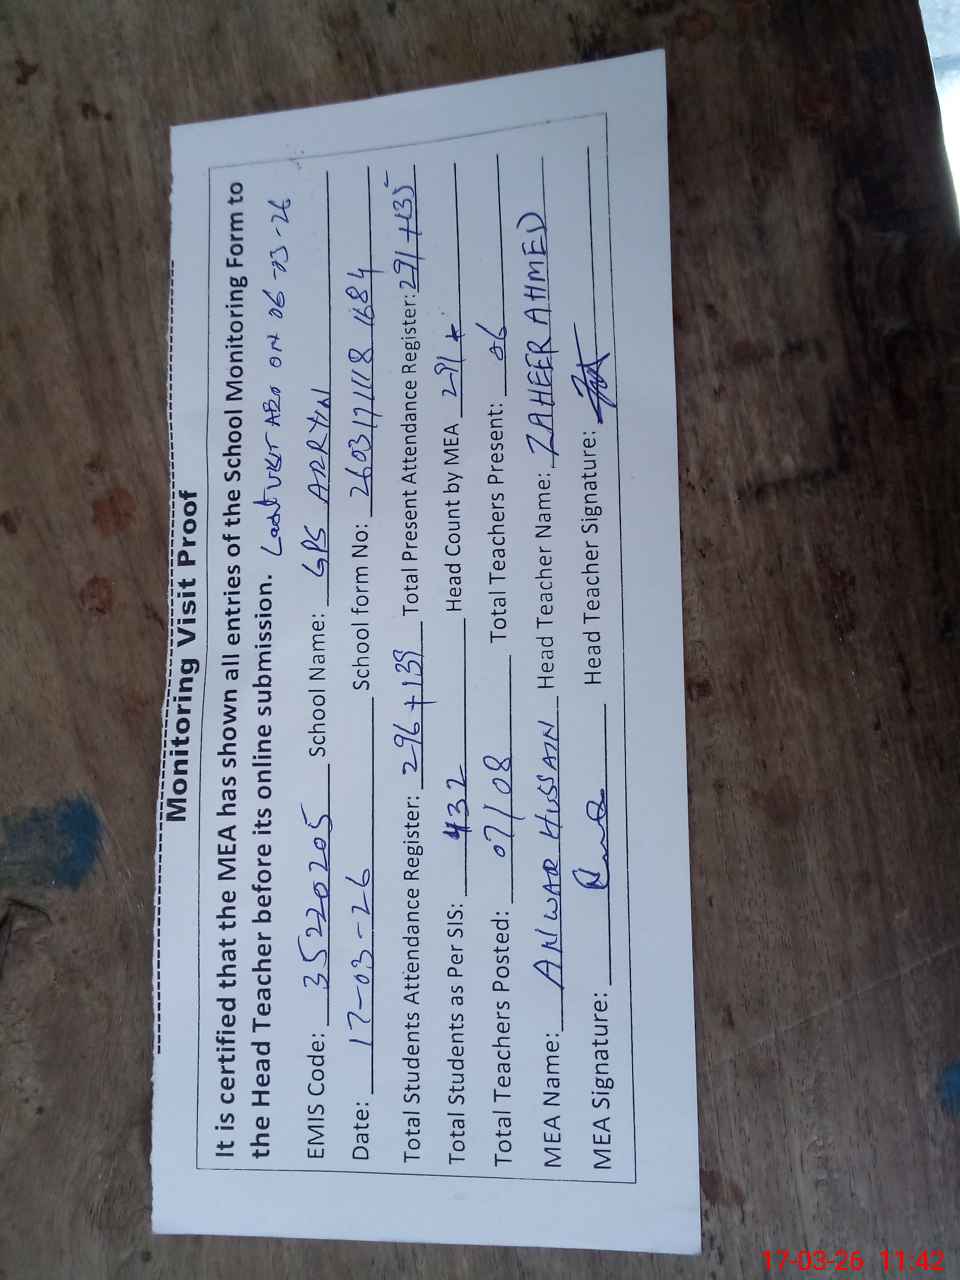 Monitoring Visit Proof
It is certified that the MEA has shown all entries of the School Monitoring Form to
the Head Teacher before its online submission. Last visit ABO ON 06-03-26
EMIS Code: 35220205 School Name: GPS ARRYN
Date: 17-03-26 School form No: 2603171118 1684
Total Students Attendance Register: 296+139 Total Present Attendance Register: 291+135
Total Students as Per SIS: 432 Head Count by MEA 291+
Total Teachers Posted: 07/08 Total Teachers Present: 06
MEA Name: ANWAR HUSSAIN Head Teacher Name: ZAHEER AHMED
MEA Signature: Head Teacher Signature:
17-03-26 11:42